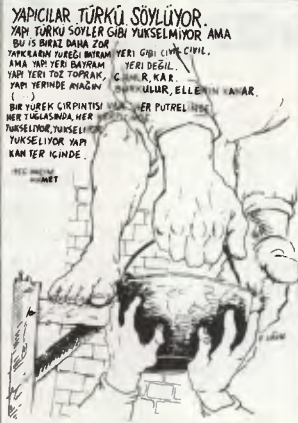 YAPICILAR TÜRKÜ SÖYLÜYOR.
YAPI TÜRKÜ SÖYLER GİBİ YÜKSELMİYOR AMA
BU İŞ BİRAZ DAHA ZOR
YAPICILARIN YÜREĞİ BAYRAM YERİ GİBİ CIVIL CIVIL,
AMA YAPI YERİ BAYRAM YERİ DEĞİL.
YAPI YERİ TOZ TOPRAK, KAR.
YAPI YERİNDE AYAĞIN BURKULUR, ELLERİN KANAR.
(...)
BİR YÜREK ÇIRPINTISI HER PUTREL
HER TUĞLASINDA, HER
YÜKSELİYOR, YÜKSELİ
YÜKSELİYOR YAPI
KAN TER İÇİNDE.